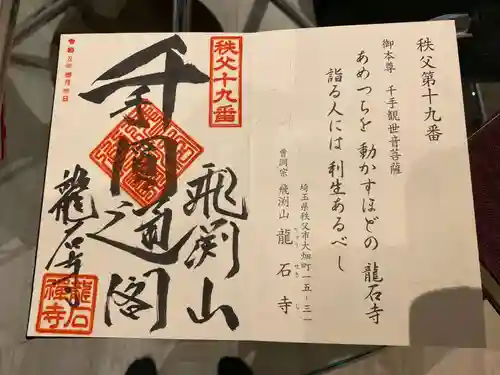 秩父第十九番
御本尊 千手観世音菩薩
あめつちを 動かすほどの 龍石寺
詣る人には 利生あるべし
埼玉県秩父市大畑町一五-三一
曹洞宗 飛渕山 龍石寺
りゅうせきじ
秩父十九番
飛渕山
千手圓通閣
龍石寺
龍石禅寺